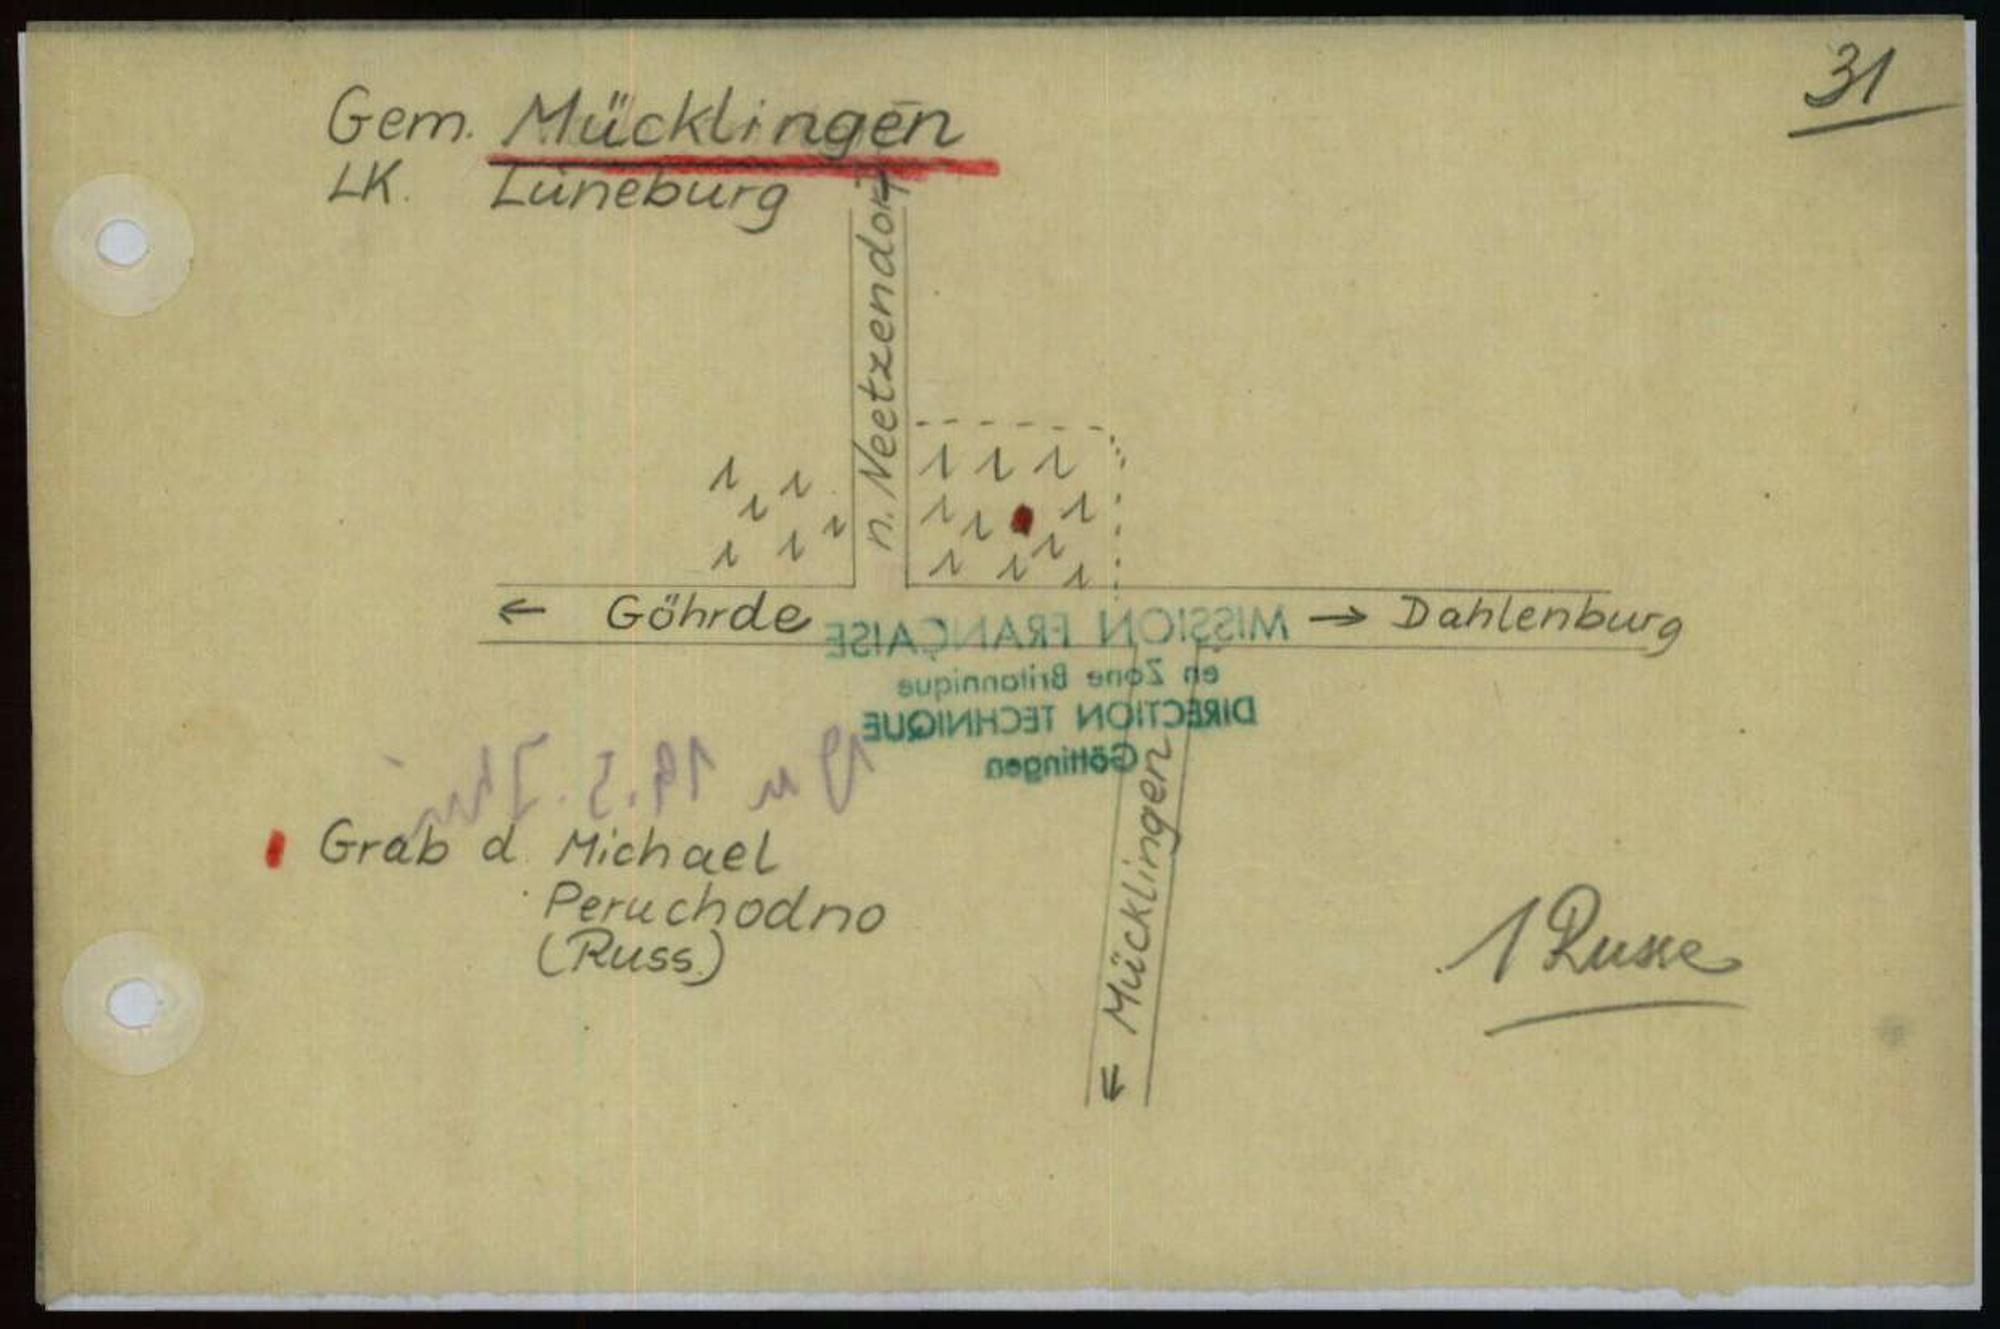 31
Gem. Mücklingen
LK. Lüneburg
n. Neetzendorf
← Göhrde
→ Dahlenburg
MISSION FRANÇAISE
en Zone Britannique
DIRECTION TECHNIQUE
Göttingen
← Mücklingen
Grab d Michael
Peruchodno
(Russ.)
1 Russe